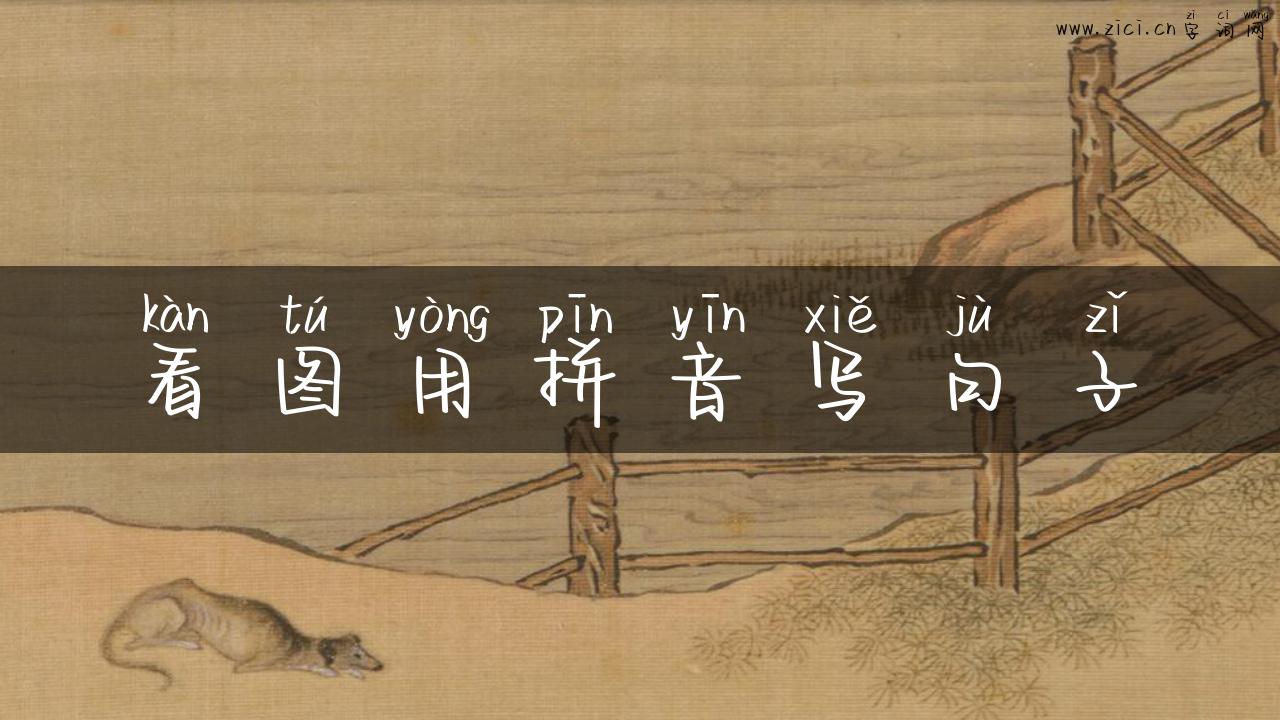 zì cí wǎng
www.zici.cn 字 词 网
kàn tú yòng pīn yīn xiě jù zǐ
看 图 用 拼 音 写 句 子